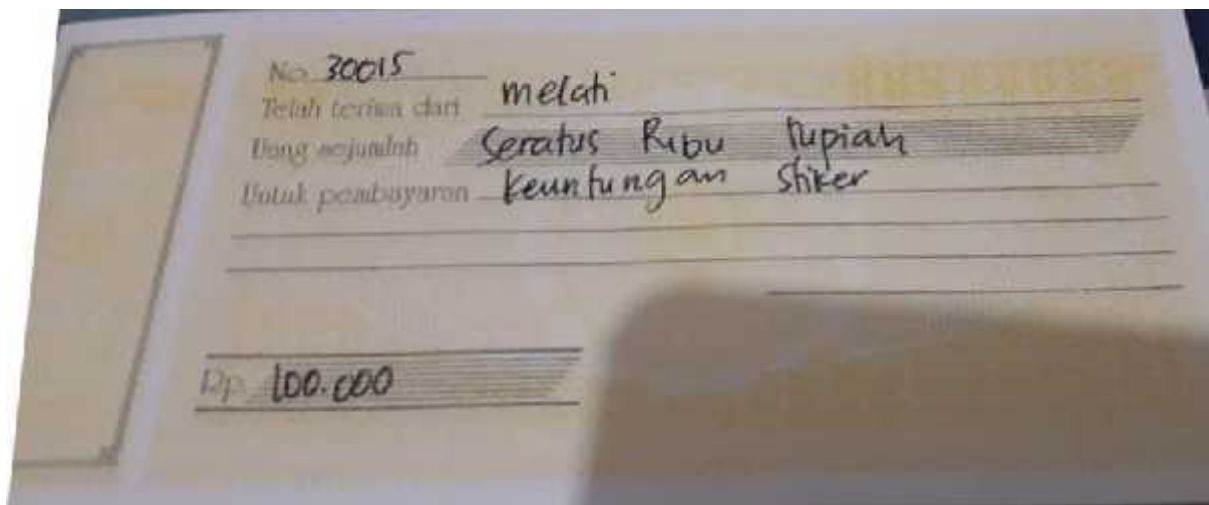 No. 30015
Telah terima dari melati
Uang sejumlah Seratus Ribu Rupiah
Untuk pembayaran keuntungan Stiker
Rp. 100.000